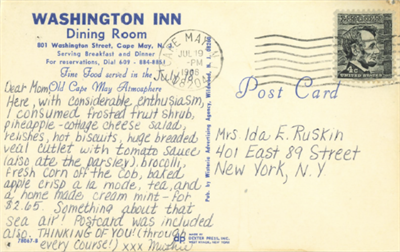 WASHINGTON INN
Dining Room
801 Washington Street, Cape May, N.J.
Serving Breakfast and Dinner
For reservations, Dial 609 -
Fine Food served in the
Old Cape May Atmosphere
July '68
Dear Mom,
Here, with considerable enthusiasm,
I consumed frosted fruit shrub,
pineapple-cottage cheese salad,
relishes, hot biscuits, huge breaded
veal cutlet with tomato sauce
(also ate the parsley), brocolli,
fresh corn off the cob, baked
apple crisp a la mode, tea, and
a home made cream mint - for
$2.65. Something about that
sea air! Postcard was included
also. THINKING OF YOU! (through
every course!) xxx
Pub. by Wistaria Advertising Agency, Wildwood, N. J.
78067-B
MADE BY
DEXTER PRESS, INC.
WEST NYACK, NEW YORK
CAPE MAY
JUL 19
-PM
Post Card
Mrs Ida E. Ruskin
401 East 89 Street
New York, N.Y
UNITED STATES